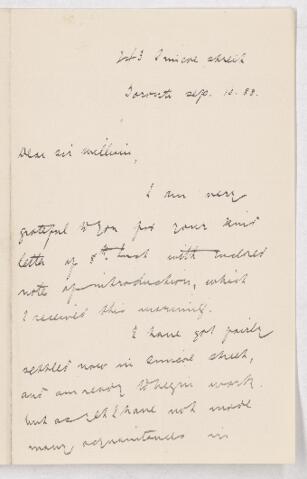 243 Simcoe street
Toronto Sep. 10. 88.
Dear Sir William,
I am very
grateful to you for your kind
letter of 8th inst with enclosed
note of introduction, which
I received this morning.
I have got fairly
settled now in Simcoe street,
and am ready to begin work.
but as yet I have not made
many acquaintances in